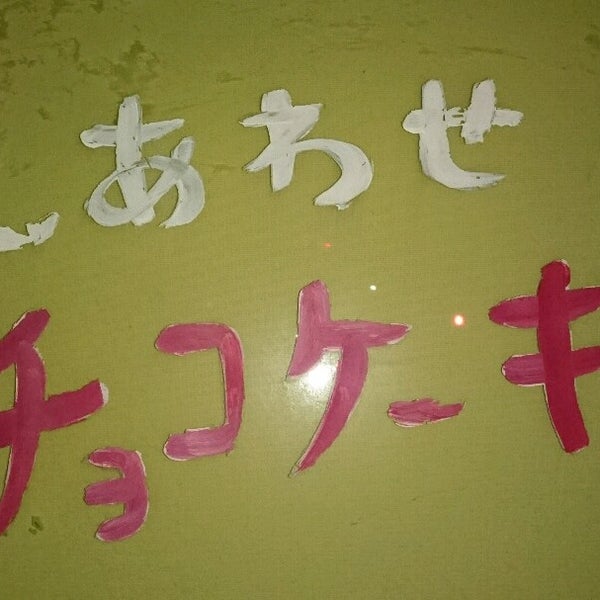 しあわせ
チョコケーキ